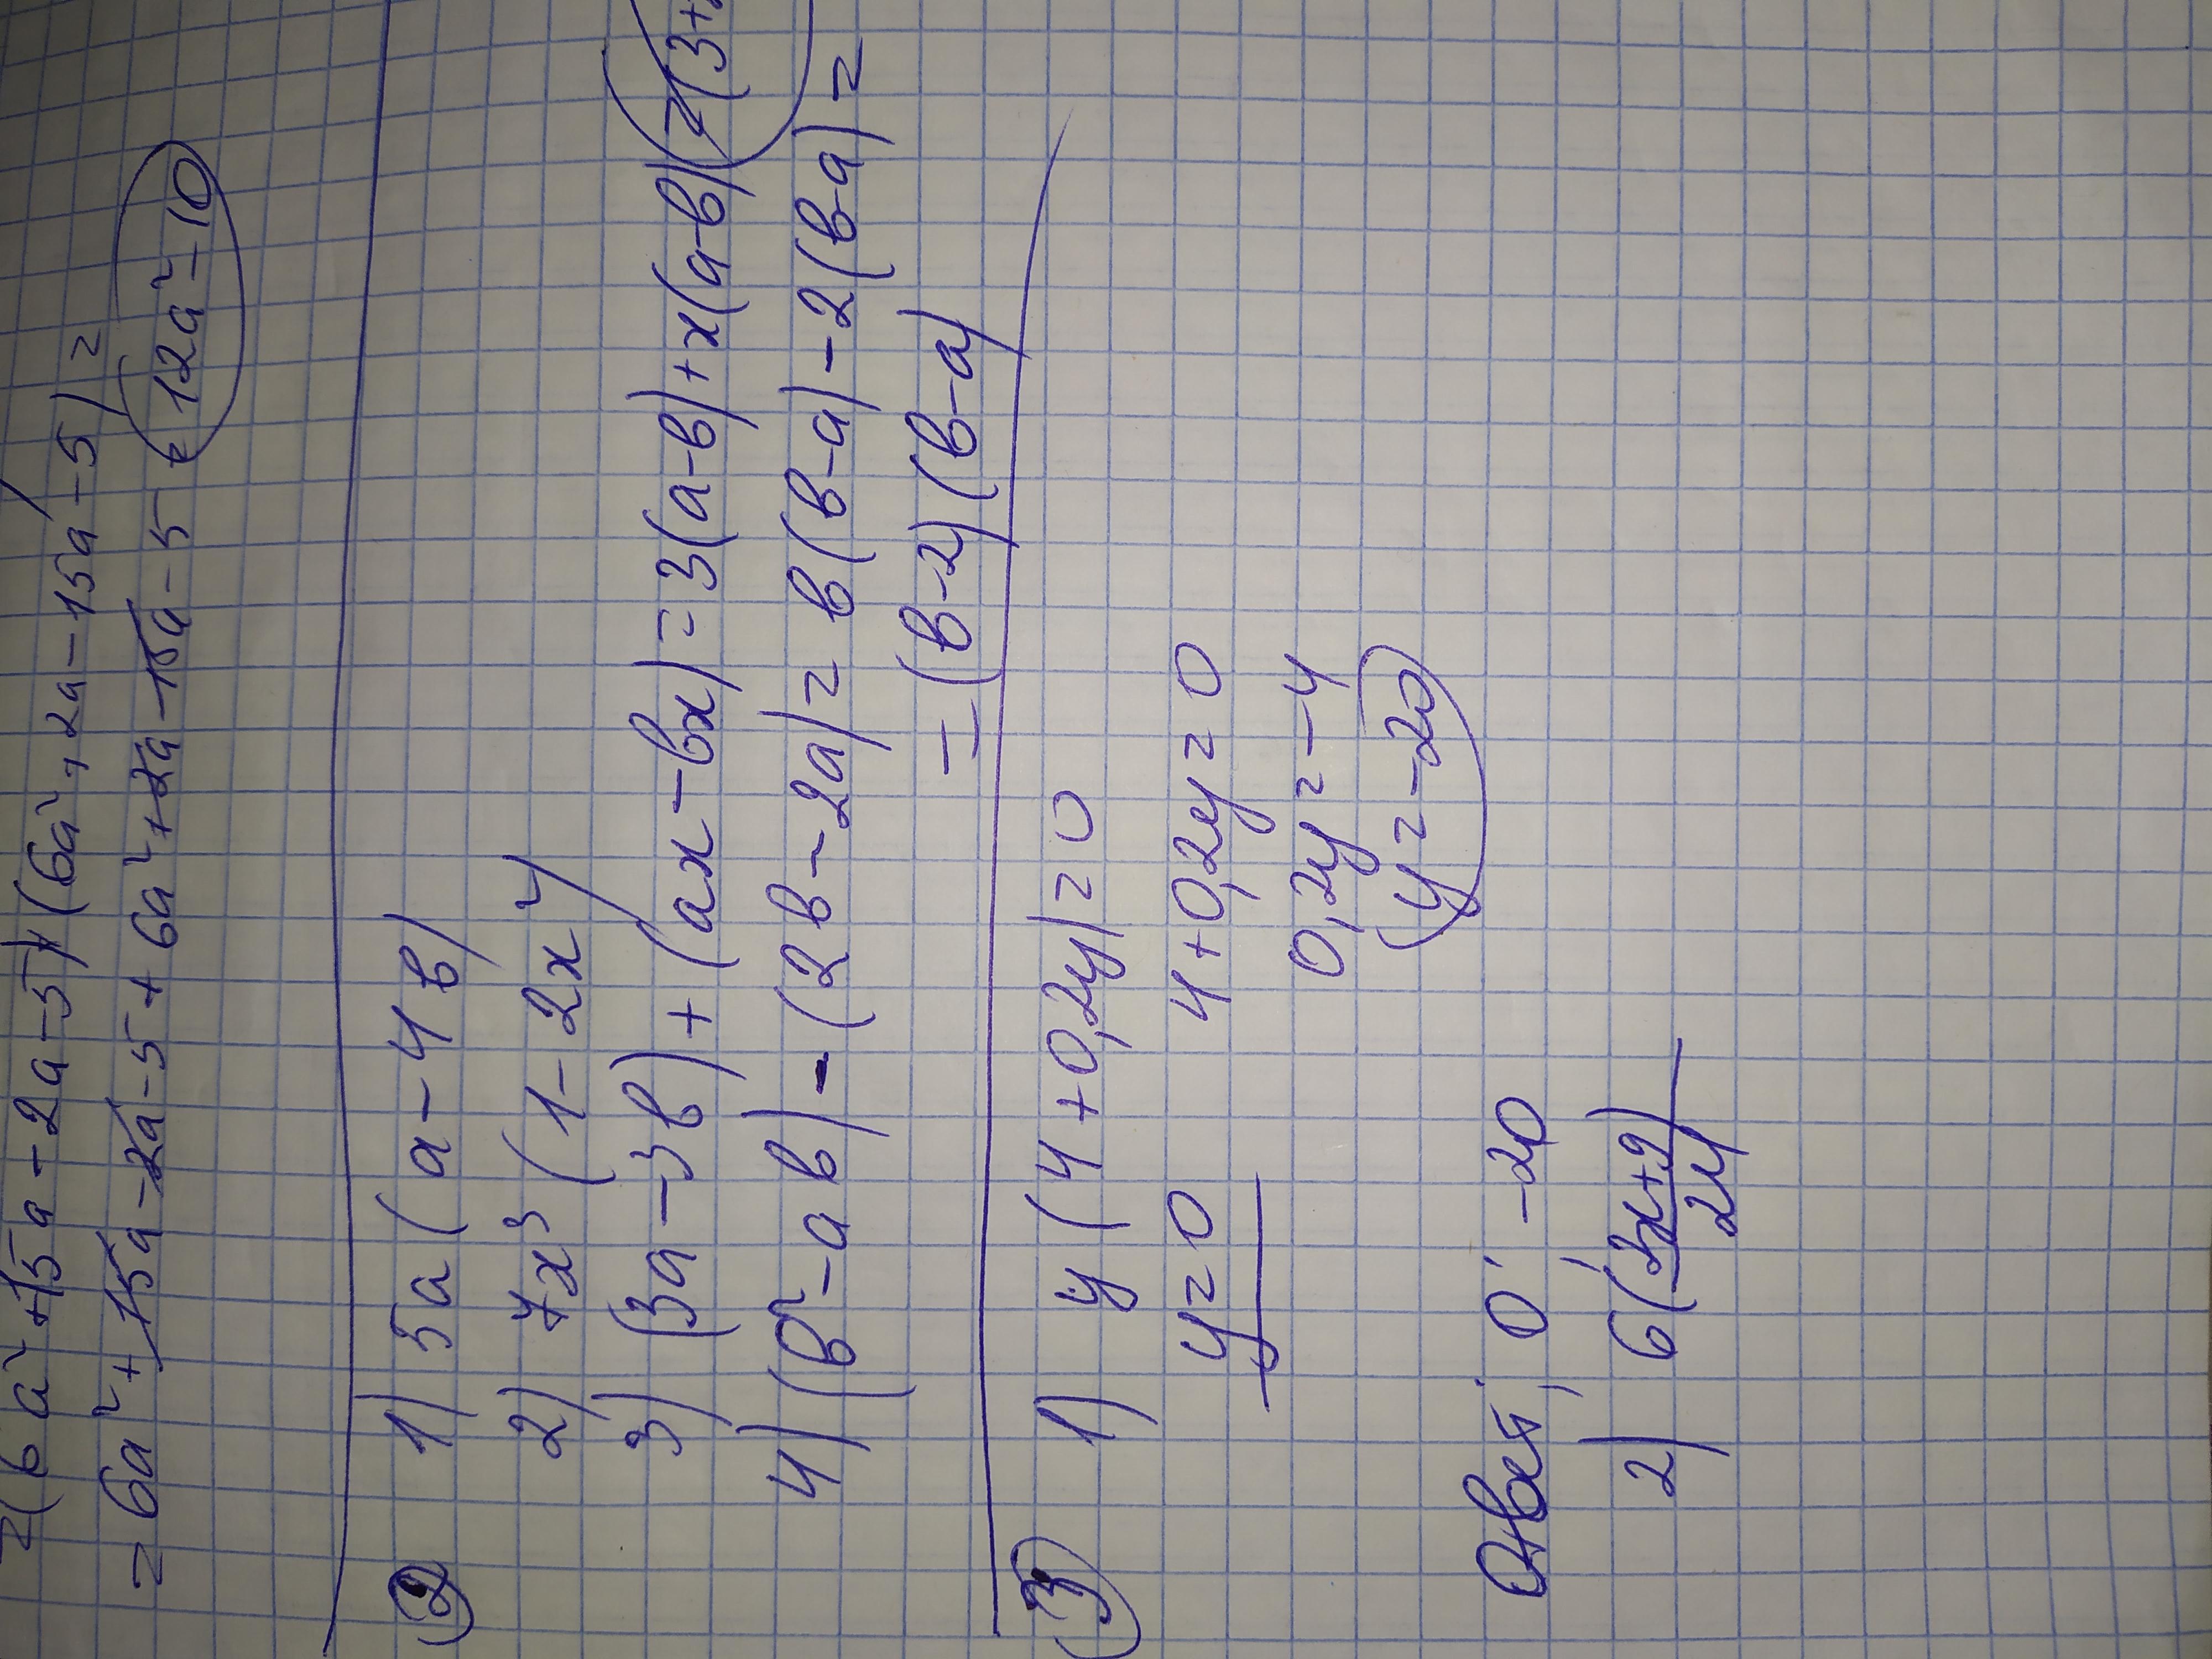 =(6a²+15a-2a-5)+(6a²+2a-15a-5)=
=6a²+15a-2a-5+6a²+2a-15a-5=12a²-10
② 1) 5a(a-4в)
2) 7x³(1-2x⁴)
3) (3a-3в)+(ax-вx)=3(a-в)+x(a-в)=(3+
4) (в²-aв)-(2в-2a)=в(в-a)-2(в-a)=
=(в-2)(в-a)
③ 1) y(4+0,2y)=0
y=0 4+0,2y=0
0,2y=-4
y=-20
Ответ: 0; -20
2) 6(3x+9)
24